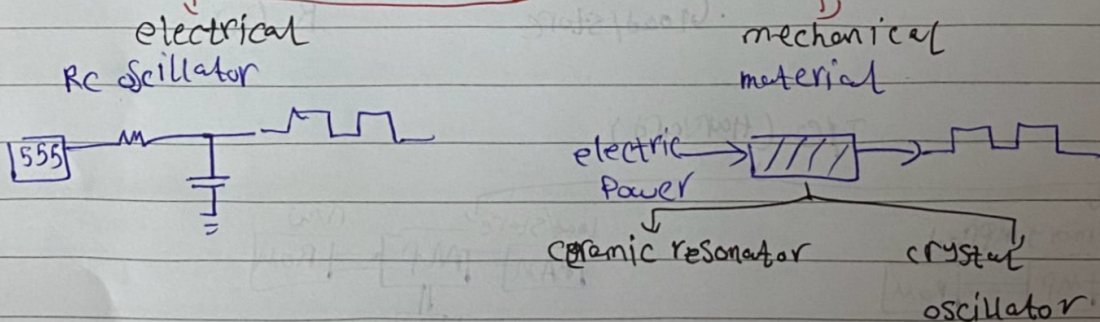 electrical
RC oscillator
555
mechanical
material
electric
Power
ceramic resonator
crystal
oscillator